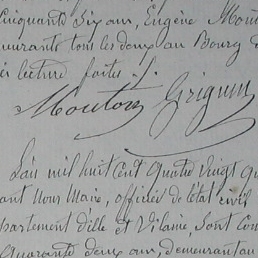 Cinquante six ans, Eugène Mout
meurants tous les deux au Bourg d
lecture faites /.
Mouton Grignon
L'an mil huit cent quatre vingt qu
ant nous Maire, officier de l'état civil
partement d'Ille et Vilaine, sont com
quarante deux ans, demeurant au